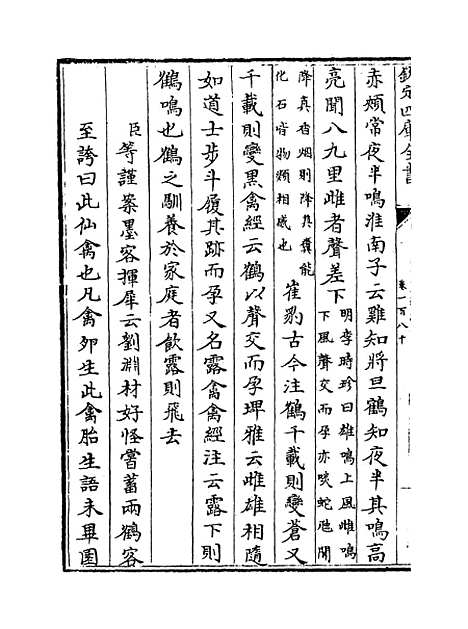 欽定四庫全書
卷一百八十
赤頰常夜半鳴淮南子云雞知將旦鶴知夜半其鳴高
亮聞八九里雌者聲差下明李時珍曰雄鳴上風雌鳴
下風聲交而孕亦啖蛇虺聞
降真香烟則降其糞能
化石皆物類相感也
崔豹古今注鶴千載則變蒼又
千載則變黑禽經云鶴以聲交而孕埤雅云雌雄相隨
如道士步斗履其跡而孕又名露禽禽經注云露下則
鶴鳴也鶴之馴養於家庭者飲露則飛去
臣等謹案墨客揮犀云劉淵材好怪嘗蓄兩鶴客
至誇曰此仙禽也凡禽卵生此禽胎生語未畢園